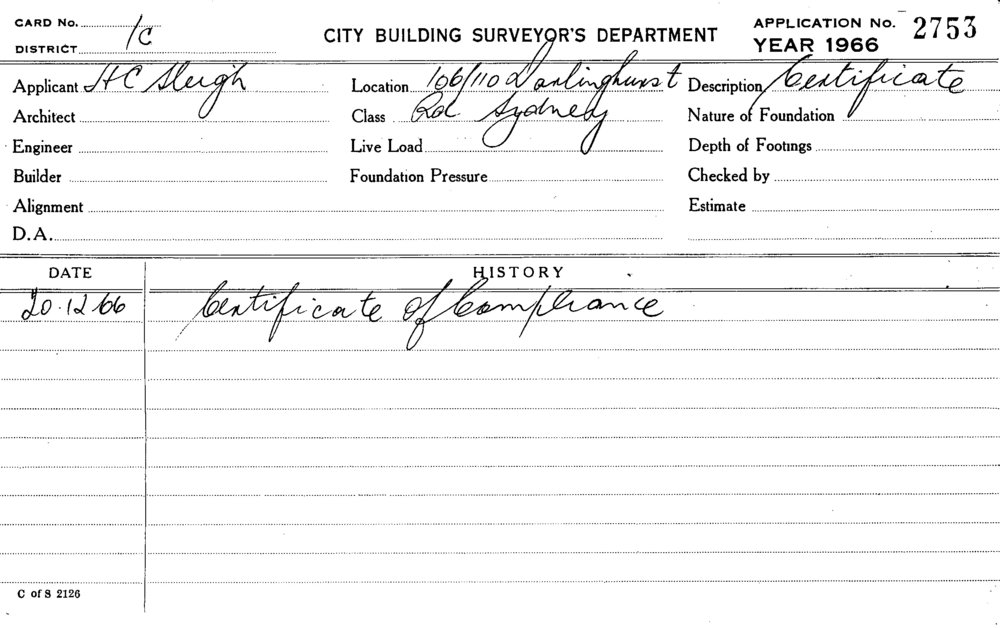 CARD No. 1C
DISTRICT
CITY BUILDING SURVEYOR'S DEPARTMENT
APPLICATION No. 2753
YEAR 1966
Applicant H C Sleigh
Location 106/110 Darlinghurst
Description Certificate
Architect
Class Rd Sydney
Nature of Foundation
Engineer
Live Load
Depth of Footings
Builder
Foundation Pressure
Checked by
Alignment
Estimate
D.A.
DATE
HISTORY
20.12.66
Certificate of Compliance
C of S 2126